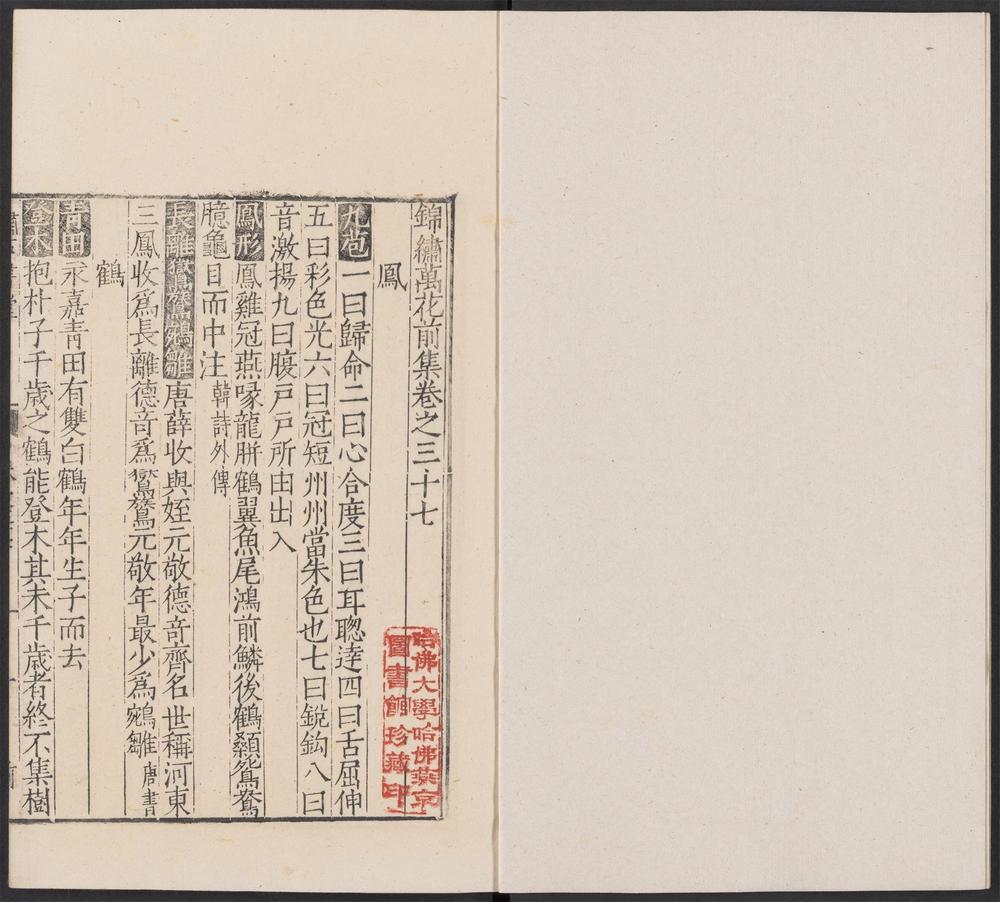 錦繡萬花前集卷之三十七
鳳
九苞一曰歸命二曰心合度三曰耳聰達四曰舌屈伸
五曰彩色光六曰冠短州州當朱色也七曰銳鈎八曰
音激揚九曰腹戸戸所由出入
鳳形鳳雞冠燕喙龍胼鶴翼魚尾鴻前鱗後鶴顙鴛鴦
臆龜目而中注韓詩外傳
長離鸑鷟鵷雛唐薛收與姪元敬德音齊名世稱河東
三鳳收爲長離德音爲鸑鷟元敬年最少爲鵷雛唐書
鶴
青田永嘉青田有雙白鶴年年生子而去
登木抱朴子千歲之鶴能登木其未千歲者終不集樹
哈佛大學哈佛燕京
圖書館珍藏印